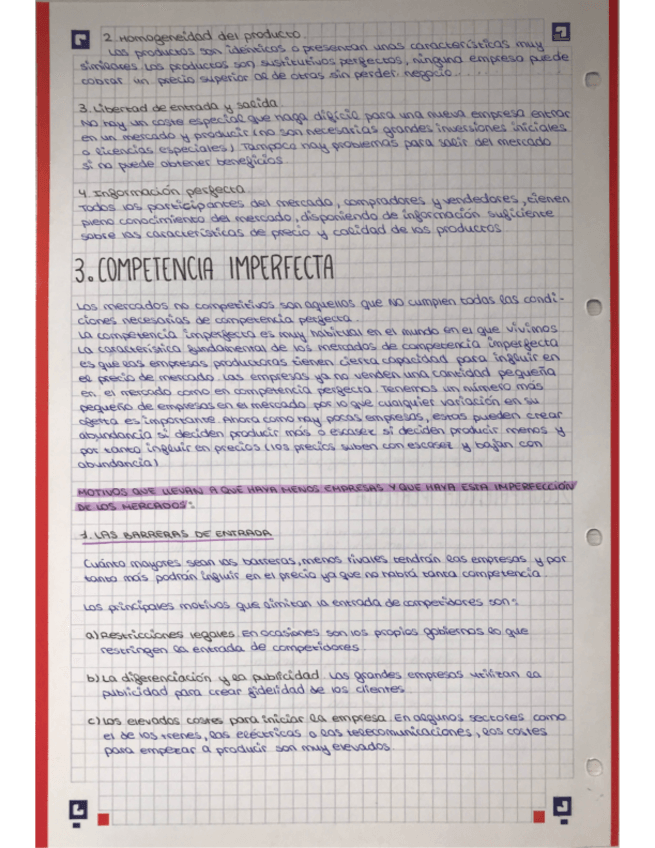 2. Homogeneidad del producto.
Los productos son idénticos o presentan unas características muy
similares. Los productos son sustitutivos perfectos, ninguna empresa puede
cobrar un precio superior al de otras sin perder negocio.
3. Libertad de entrada y salida.
No hay un coste especial que haga difícil para una nueva empresa entrar
en un mercado y producir (no son necesarias grandes inversiones iniciales
o licencias especiales). Tampoco hay problemas para salir del mercado
si no puede obtener beneficios.
4. Información perfecta.
Todos los participantes del mercado, compradores y vendedores, tienen
pleno conocimiento del mercado, disponiendo de información suficiente
sobre las características de precio y calidad de los productos.
3. COMPETENCIA IMPERFECTA
Los mercados no competitivos son aquellos que NO cumplen todas las condi-
ciones necesarias de competencia perfecta.
La competencia imperfecta es muy habitual en el mundo en el que vivimos.
La característica fundamental de los mercados de competencia imperfecta
es que las empresas productoras tienen cierta capacidad para influir en
el precio de mercado. Las empresas ya no venden una cantidad pequeña
en el mercado como en competencia perfecta. Tenemos un número más
pequeño de empresas en el mercado, por lo que cualquier variación en su
oferta es importante. Ahora como hay pocas empresas, estas pueden crear
abundancia si deciden producir más o escasez si deciden producir menos y
por tanto influir en precios (los precios suben con escasez y bajan con
abundancia)
MOTIVOS QUE LLEVAN A QUE HAYA MENOS EMPRESAS Y QUE HAYA ESTA IMPERFECCIÓN
DE LOS MERCADOS:
1. LAS BARRERAS DE ENTRADA
Cuánto mayores sean las barreras, menos rivales tendrán las empresas y por
tanto más podrán influir en el precio ya que no habrá tanta competencia.
Los principales motivos que limitan la entrada de competidores son:
a) Restricciones legales. En ocasiones son los propios gobiernos lo que
restringen la entrada de competidores.
b) La diferenciación y la publicidad. Las grandes empresas utilizan la
publicidad para crear fidelidad de los clientes.
c) Los elevados costes para iniciar la empresa. En algunos sectores como
el de los trenes, las eléctricas o las telecomunicaciones, los costes
para empezar a producir son muy elevados.